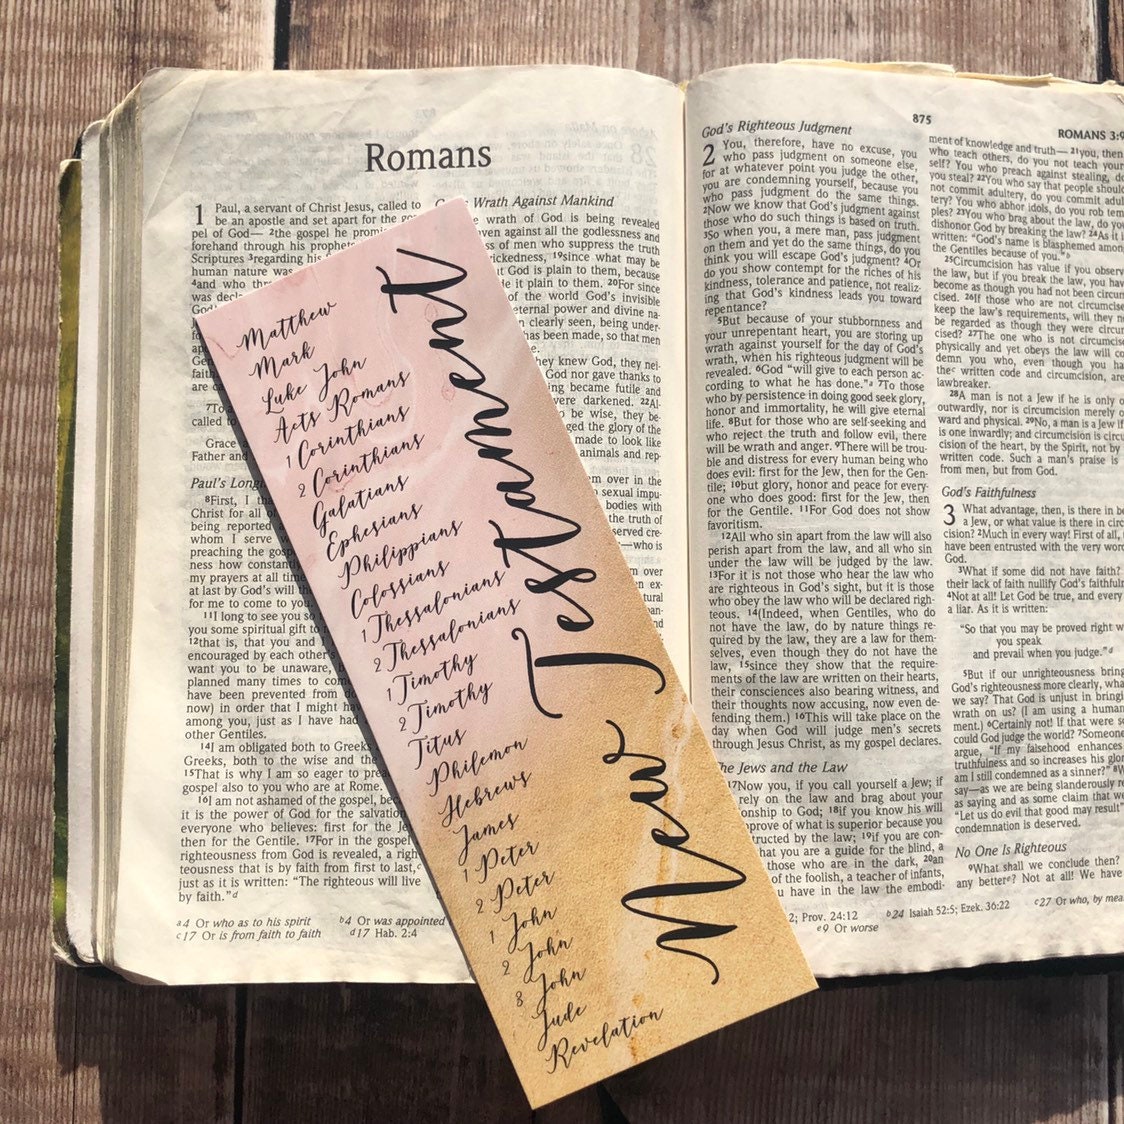 Romans
1 Paul, a servant of Christ Jesus, called to
be an apostle and set apart for the
pel of God— 2the gospel he
forehand through his
Scriptures 3regarding his
human nature was
4and who
was
7To
called to
Grace
Father and
Paul's
8First, I
Christ for all
being reported
whom I serve
preaching the
how constantly
my prayers at all
at last by God's will
for me to come to you.
11I long to see you so
you some spiritual gift to
12that is, that you and I
encouraged by each other's
want you to be unaware,
planned many times to
have been prevented from
now) in order that I might
among you, just as I have had
other Gentiles.
14I am obligated both to Greeks
Greeks, both to the wise and the
15That is why I am so eager to
gospel also to you who are at Rome.
16I am not ashamed of the gospel,
it is the power of God for the salvation
everyone who believes: first for the
then for the Gentile. 17For in the gospel
righteousness from God is revealed, a
teousness that is by faith from first to last,c
just as it is written: "The righteous will live
by faith."d
a4 Or who as to his spirit b4 Or was appointed
c17 Or is from faith to faith d17 Hab. 2:4
Wrath Against Mankind
wrath of God is being revealed
against all the godlessness and
of men who suppress the truth
19since what may be
God is plain to them, because
it plain to them. 20For since
of the world God's invisible
eternal power and divine
clearly seen, being under-
has been made, so that men
they knew God, they
God nor gave thanks to
became futile and
were darkened.
to be wise, they
the glory of the
made to look like
animals and rep-
them over in the
sexual impu-
bodies with
the truth of
served
—who is
Matthew
Mark
Luke John
Acts Romans
1 Corinthians
2 Corinthians
Galatians
Ephesians
Philippians
Colossians
1 Thessalonians
2 Thessalonians
1 Timothy
2 Timothy
Titus
Philemon
Hebrews
James
1 Peter
2 Peter
1 John
2 John
3 John
Jude
Revelation
New Testament
875
ROMANS 3:9
God's Righteous Judgment
2 You, therefore, have no excuse, you
who pass judgment on someone else,
for at whatever point you judge the other,
you are condemning yourself, because you
who pass judgment do the same things.
2Now we know that God's judgment against
those who do such things is based on truth.
3So when you, a mere man, pass judgment
on them and yet do the same things, do you
think you will escape God's judgment? 4Or
do you show contempt for the riches of his
kindness, tolerance and patience, not realiz-
ing that God's kindness leads you toward
repentance?
5But because of your stubbornness and
your unrepentant heart, you are storing up
wrath against yourself for the day of God's
wrath, when his righteous judgment will be
revealed. 6God "will give to each person ac-
cording to what he has done."a 7To those
who by persistence in doing good seek glory,
honor and immortality, he will give eternal
life. 8But for those who are self-seeking and
who reject the truth and follow evil, there
will be wrath and anger. 9There will be trou-
ble and distress for every human being who
does evil: first for the Jew, then for the Gen-
tile; 10but glory, honor and peace for every-
one who does good: first for the Jew, then
for the Gentile. 11For God does not show
favoritism.
12All who sin apart from the law will also
perish apart from the law, and all who sin
under the law will be judged by the law.
13For it is not those who hear the law who
are righteous in God's sight, but it is those
who obey the law who will be declared righ-
teous. 14(Indeed, when Gentiles, who do
not have the law, do by nature things re-
quired by the law, they are a law for them-
selves, even though they do not have the
law, 15since they show that the require-
ments of the law are written on their hearts,
their consciences also bearing witness, and
their thoughts now accusing, now even de-
fending them.) 16This will take place on the
day when God will judge men's secrets
through Jesus Christ, as my gospel declares.
The Jews and the Law
17Now you, if you call yourself a Jew; if
rely on the law and brag about your
to God; 18if you know his will
of what is superior because you
by the law; 19if you are con-
that you are a guide for the blind, a
those who are in the dark, 20an
of the foolish, a teacher of infants,
you have in the law the embodi-
ment of knowledge and truth— 21you, then,
who teach others, do you not teach
self? You who preach against stealing, do
you steal? 22You who say that people should
not commit adultery, do you commit
tery? You who abhor idols, do you rob tem-
ples? 23You who brag about the law, do you
dishonor God by breaking the law? 24As it
written: "God's name is blasphemed
the Gentiles because of you."b
25Circumcision has value if you observe
the law, but if you break the law, you have
become as though you had not been
cised. 26If those who are not
keep the law's requirements, will they
be regarded as though they were
cised? 27The one who is not circumcised
physically and yet obeys the law will
demn you who, even though you have
the c written code and circumcision, are
lawbreaker.
28A man is not a Jew if he is only
outwardly, nor is circumcision merely
ward and physical. 29No, a man is a Jew if
is one inwardly; and circumcision is
cision of the heart, by the Spirit, not by
written code. Such a man's praise is
from men, but from God.
God's Faithfulness
3 What advantage, then, is there in
a Jew, or what value is there in
cision? 2Much in every way! First of all,
have been entrusted with the very
God.
3What if some did not have faith?
their lack of faith nullify God's
4Not at all! Let God be true, and every
a liar. As it is written:
"So that you may be proved right
you speak
and prevail when you judge."d
5But if our unrighteousness
God's righteousness more clearly,
we say? That God is unjust in
wrath on us? (I am using a human
ment.) 6Certainly not! If that were
could God judge the world? 7Someone
argue, "If my falsehood enhances
truthfulness and so increases his
am I still condemned as a sinner?"
say—as we are being slanderously
as saying and as some claim that
"Let us do evil that good may result"
condemnation is deserved.
No One Is Righteous
9What shall we conclude then?
any bettere? Not at all! We have
2; Prov. 24:12 b24 Isaiah 52:5; Ezek. 36:22 c27 Or who, by
e9 Or worse